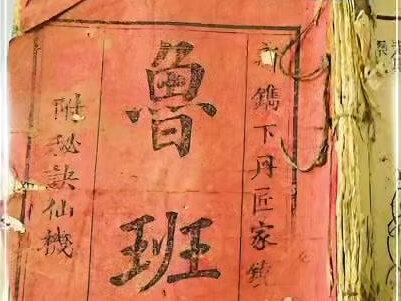 鐫下丹匠家鏡
魯班
附秘訣仙機